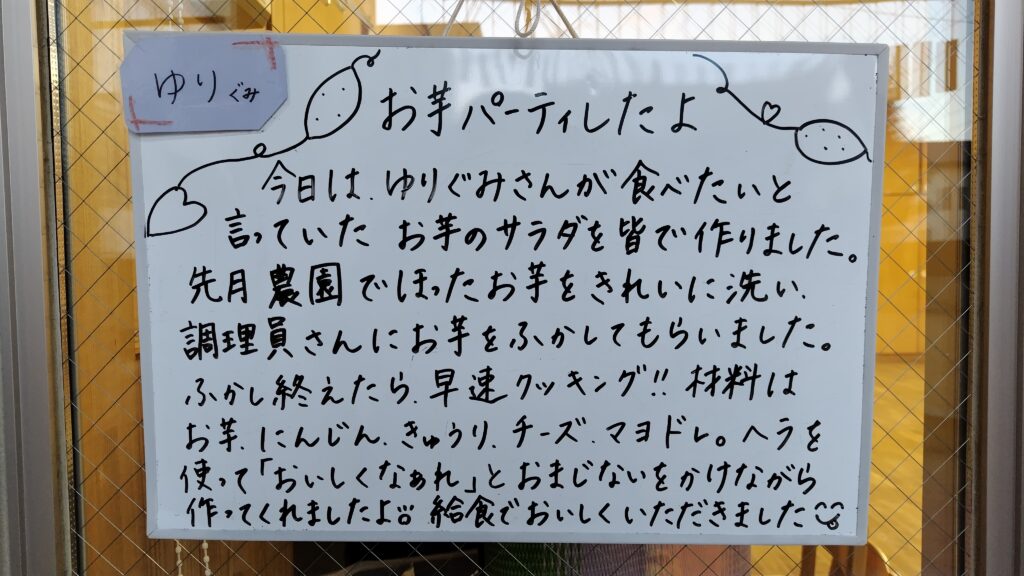 ゆりぐみ
お芋パーティしたよ
今日は、ゆりぐみさんが食べたいと
言っていたお芋のサラダを皆で作りました。
先月農園でほったお芋をきれいに洗い、
調理員さんにお芋をふかしてもらいました。
ふかし終えたら、早速クッキング!! 材料は
お芋、にんじん、きゅうり、チーズ、マヨドレ。ヘラを
使って「おいしくなぁれ」とおまじないをかけながら
作ってくれましたよ 給食でおいしくいただきました